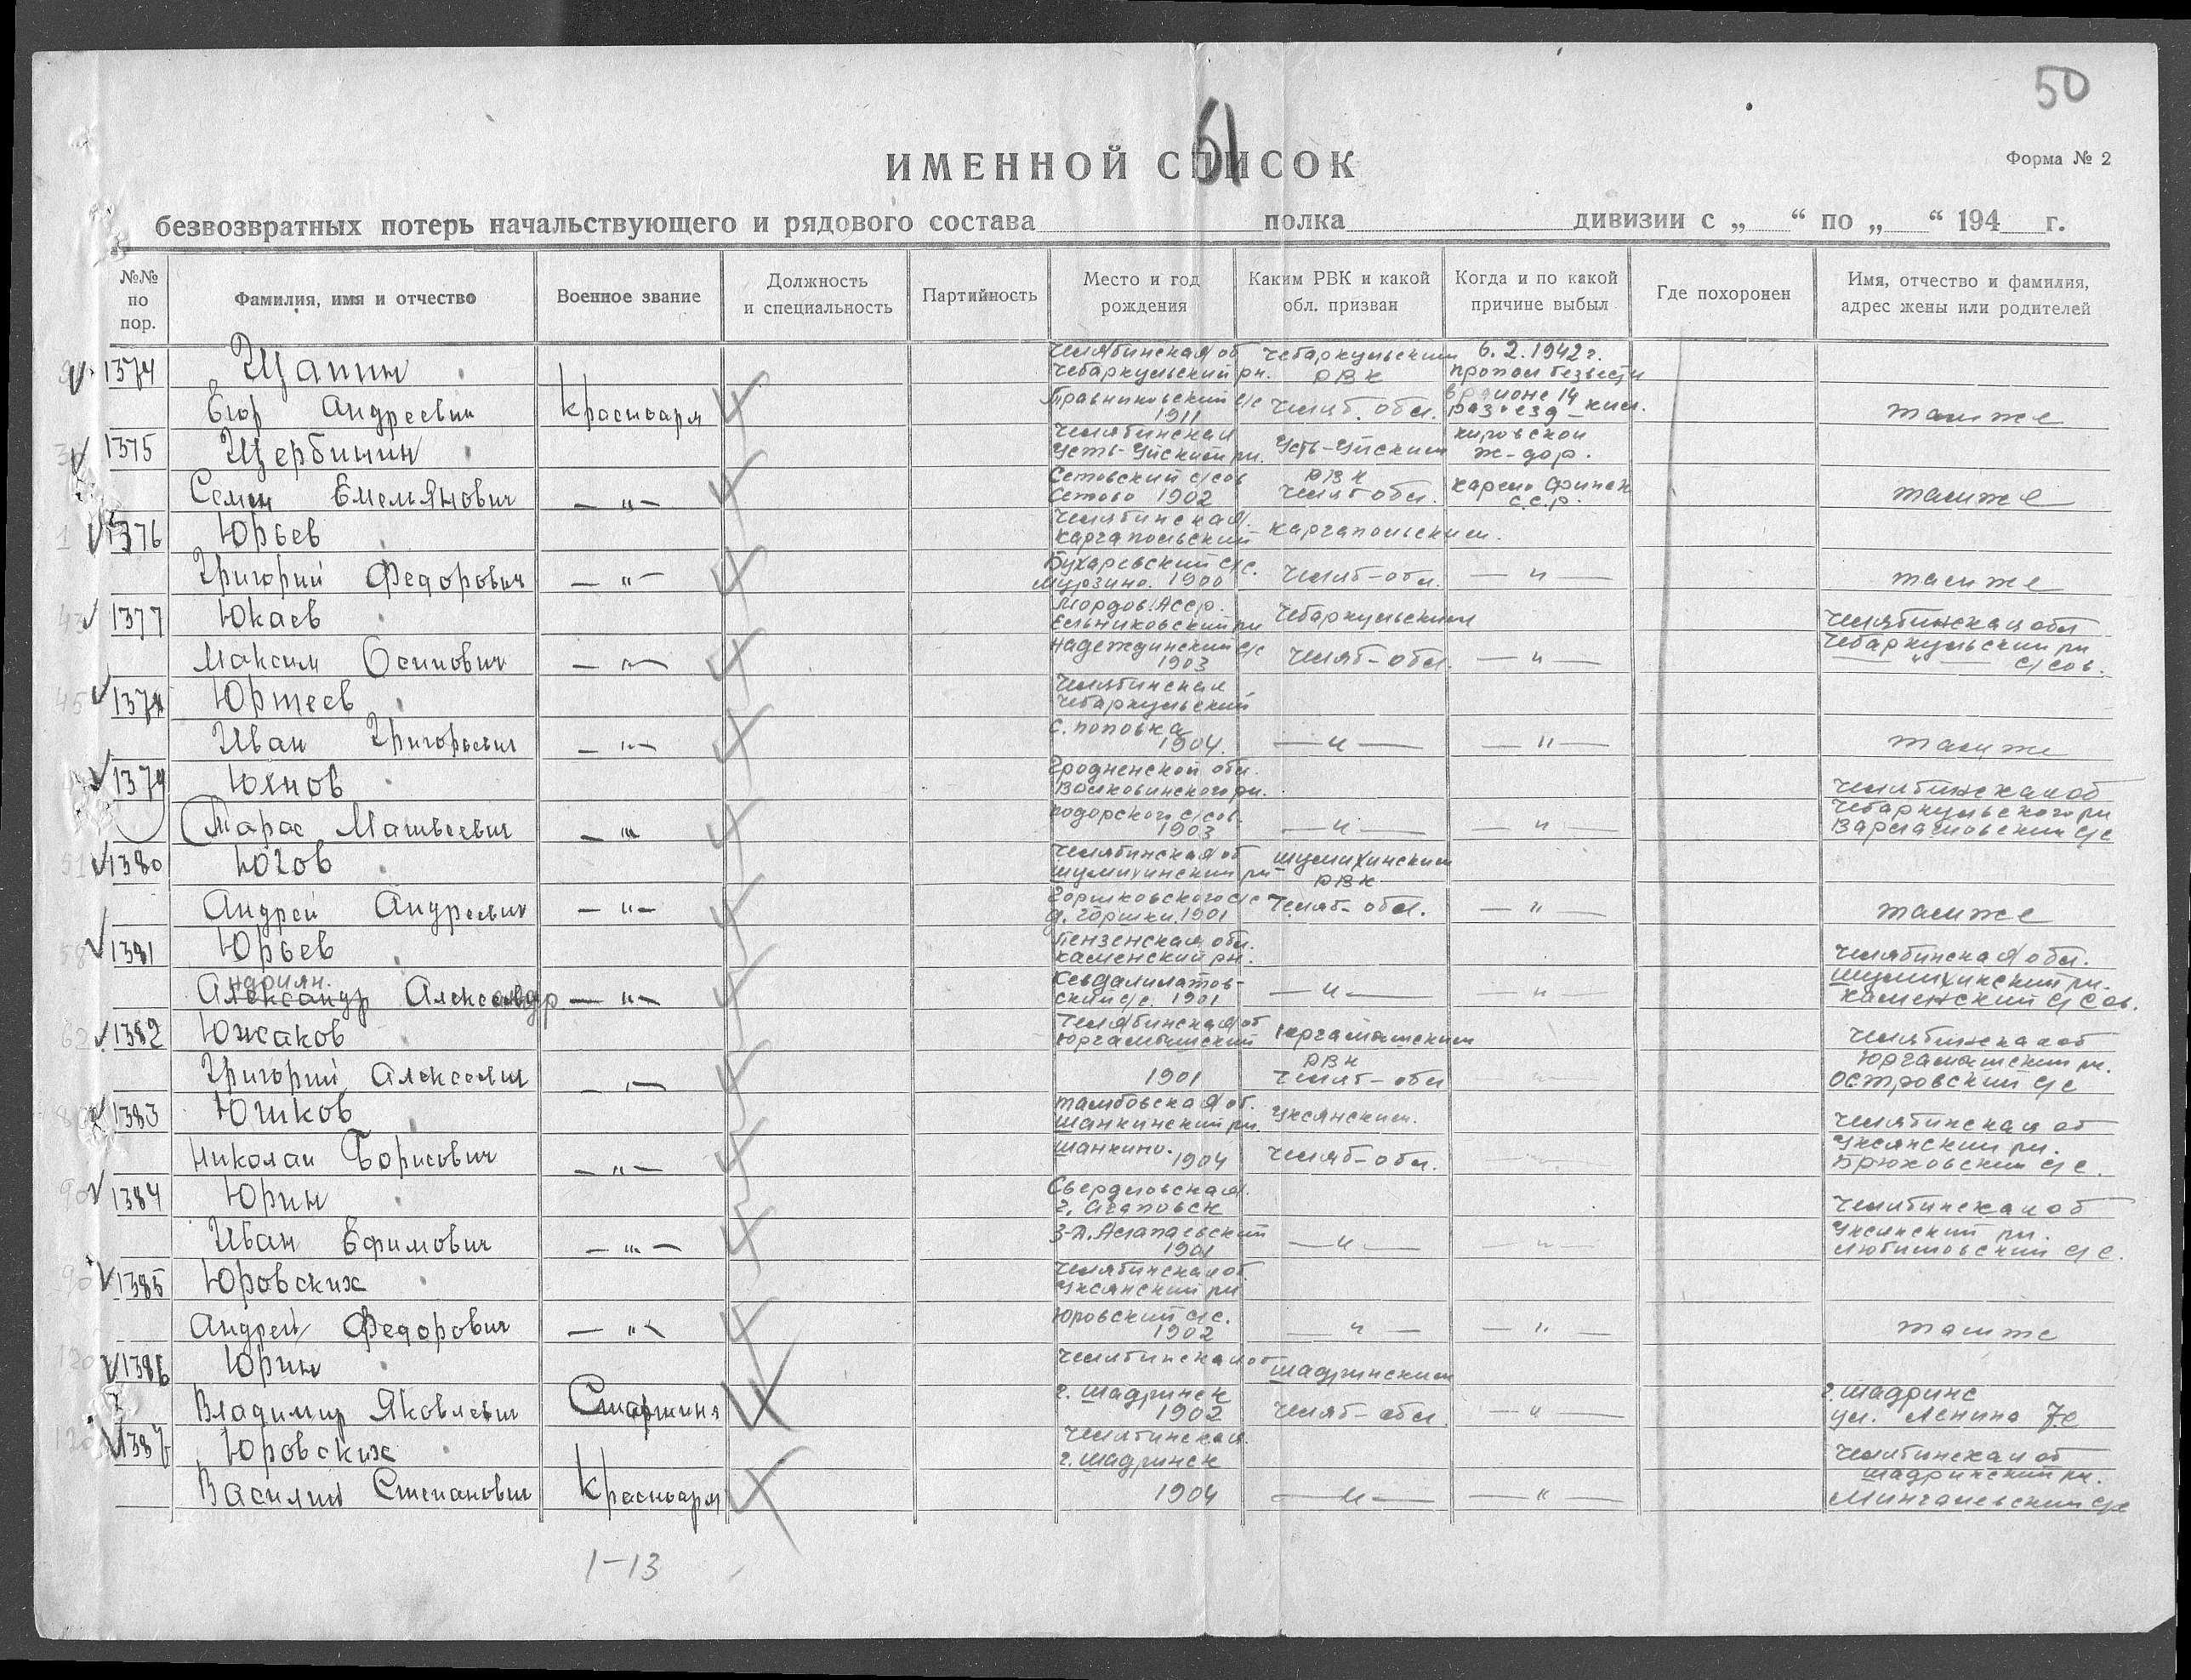 50
51
ИМЕННОЙ СПИСОК
Форма № 2
безвозвратных потерь начальствующего и рядового состава полка дивизии с „ “ по „ “ 194 г.
№№ по пор.
Фамилия, имя и отчество
Военное звание
Должность и специальность
Партийность
Место и год рождения
Каким РВК и какой обл. призван
Когда и по какой причине выбыл
Где похоронен
Имя, отчество и фамилия, адрес жены или родителей
1374 Щапин Челябинская об Чебаркульским 6.2.1942 г.
Чебаркульский рн. РВК пропал безвести
Егор Андреевич Красноарм 1911 Челяб. обл. в районе 14 разъезд там же
1375 Щербинин Челябинская Усть-Уйским кировской
Усть-Уйский рн. РВК ж-дор.
Семен Емельянович — „ — Сетовский с/сов Сетово 1902 Челяб обл. карело финск с.с.р. там же
1376 Юрьев Челябинская Каргапольский Каргапольским
Григорий Федорович — „ — Бухаревский с/с. Мурзино. 1900 Челяб-обл. — „ — там же
1377 Юкаев Мордов. Асср. Ельниковский рн Чебаркульским Челябинская обл
Максим Осипович — „ — Надеждинский с/с 1903 Челяб-обл. — „ — Чебаркульский рн — „ — с/сов.
1378 Юртеев Челябинская Чебаркульский
Иван Григорьевич — „ — с. Поповка 1904. — „ — — „ — там же
1379 Юхнов Гродненской обл. Волковинского рн. Челябинская об
Тарас Матвеевич — „ — 1903 — „ — — „ — Чебаркульского рн Варламовский с/с
1380 Югов Челябинская об Шумихинский рн Шумихинским РВК
Андрей Андреевич — „ — Горшковского с/с д. Горшки. 1901 Челяб-обл. — „ — там же
1381 Юрьев Пензенская обл. Каменский рн. Челябинская обл.
Андриян Александр — „ — 1901 — „ — — „ — Шумихинский рн. Каменский с/сов.
1382 Южаков Челябинская об Юргамышский Юргамышским РВК Челябинская об
Григорий Алексеевич — „ — 1901 Челяб-обл — „ — Юргамышский рн. Островский с/с
1383 Юшков Тамбовская об. Шанкинский рн. Уксянским. Челябинская об
Николай Борисович — „ — Шанкино. 1904 Челяб-обл. — „ — Уксянский рн. Брюховский с/с.
1384 Юрин Свердловская Челябинская об
Иван Ефимович — „ — 1901 — „ — — „ — Уксянский рн. Любимовский с/с.
1385 Юровских Челябинская об. Уксянский рн
Андрей Федорович — „ — Юровский с/с. 1902 — „ — — „ — там же
1386 Юрин Челябинская об Шадринским
Владимир Яковлевич Старшина г. Шадринск 1902 Челяб-обл. — „ — г. Шадринс ул. Ленина
1387 Юровских Челябинская г. Шадринск Челябинская об
Василий Степанович Красноарм 1904 — „ — — „ — Шадринский рн. Мингалевский с/с
1-13